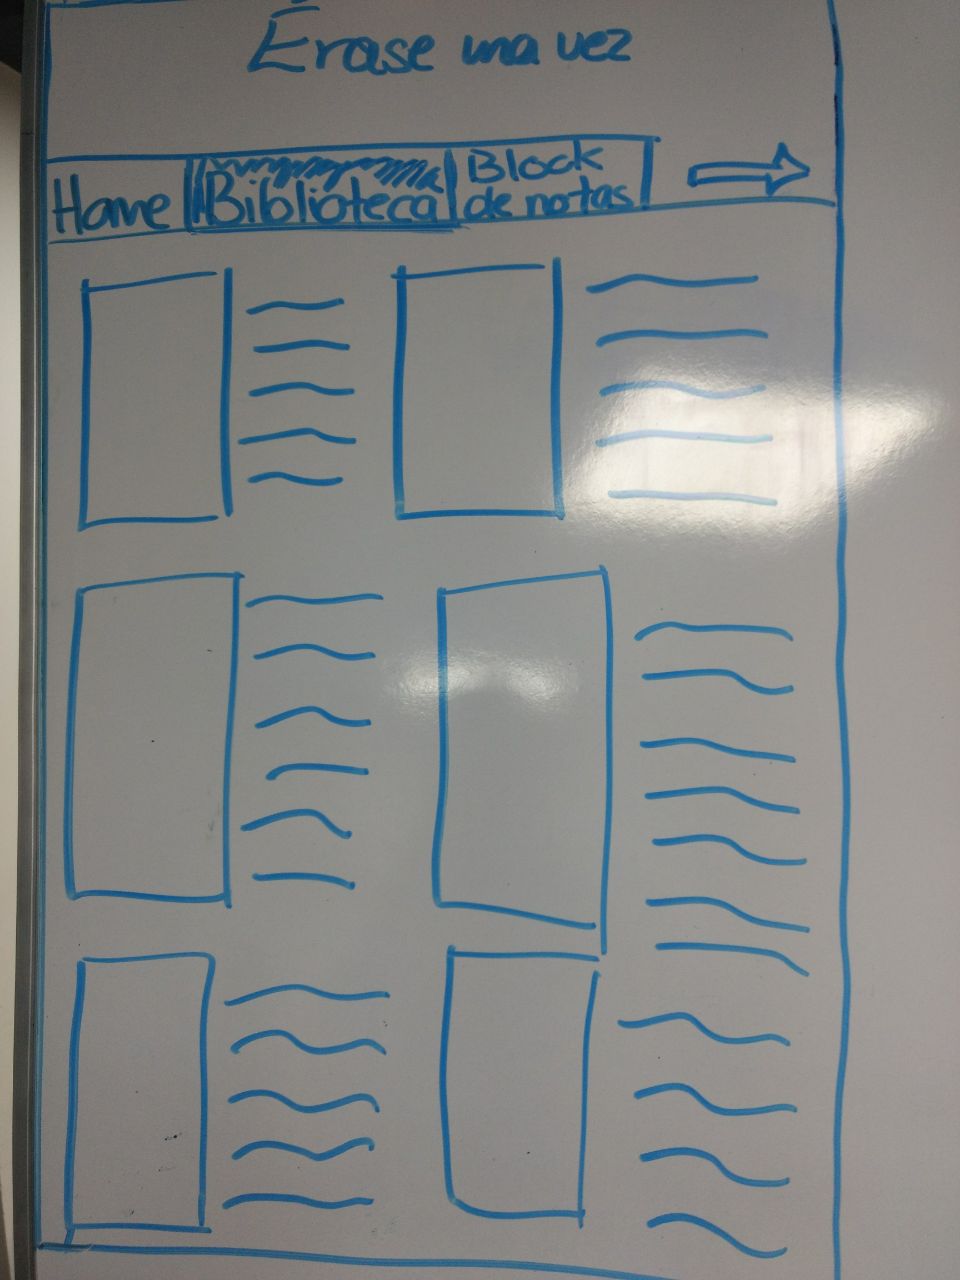 Érase una vez
Home Biblioteca Block
de notas